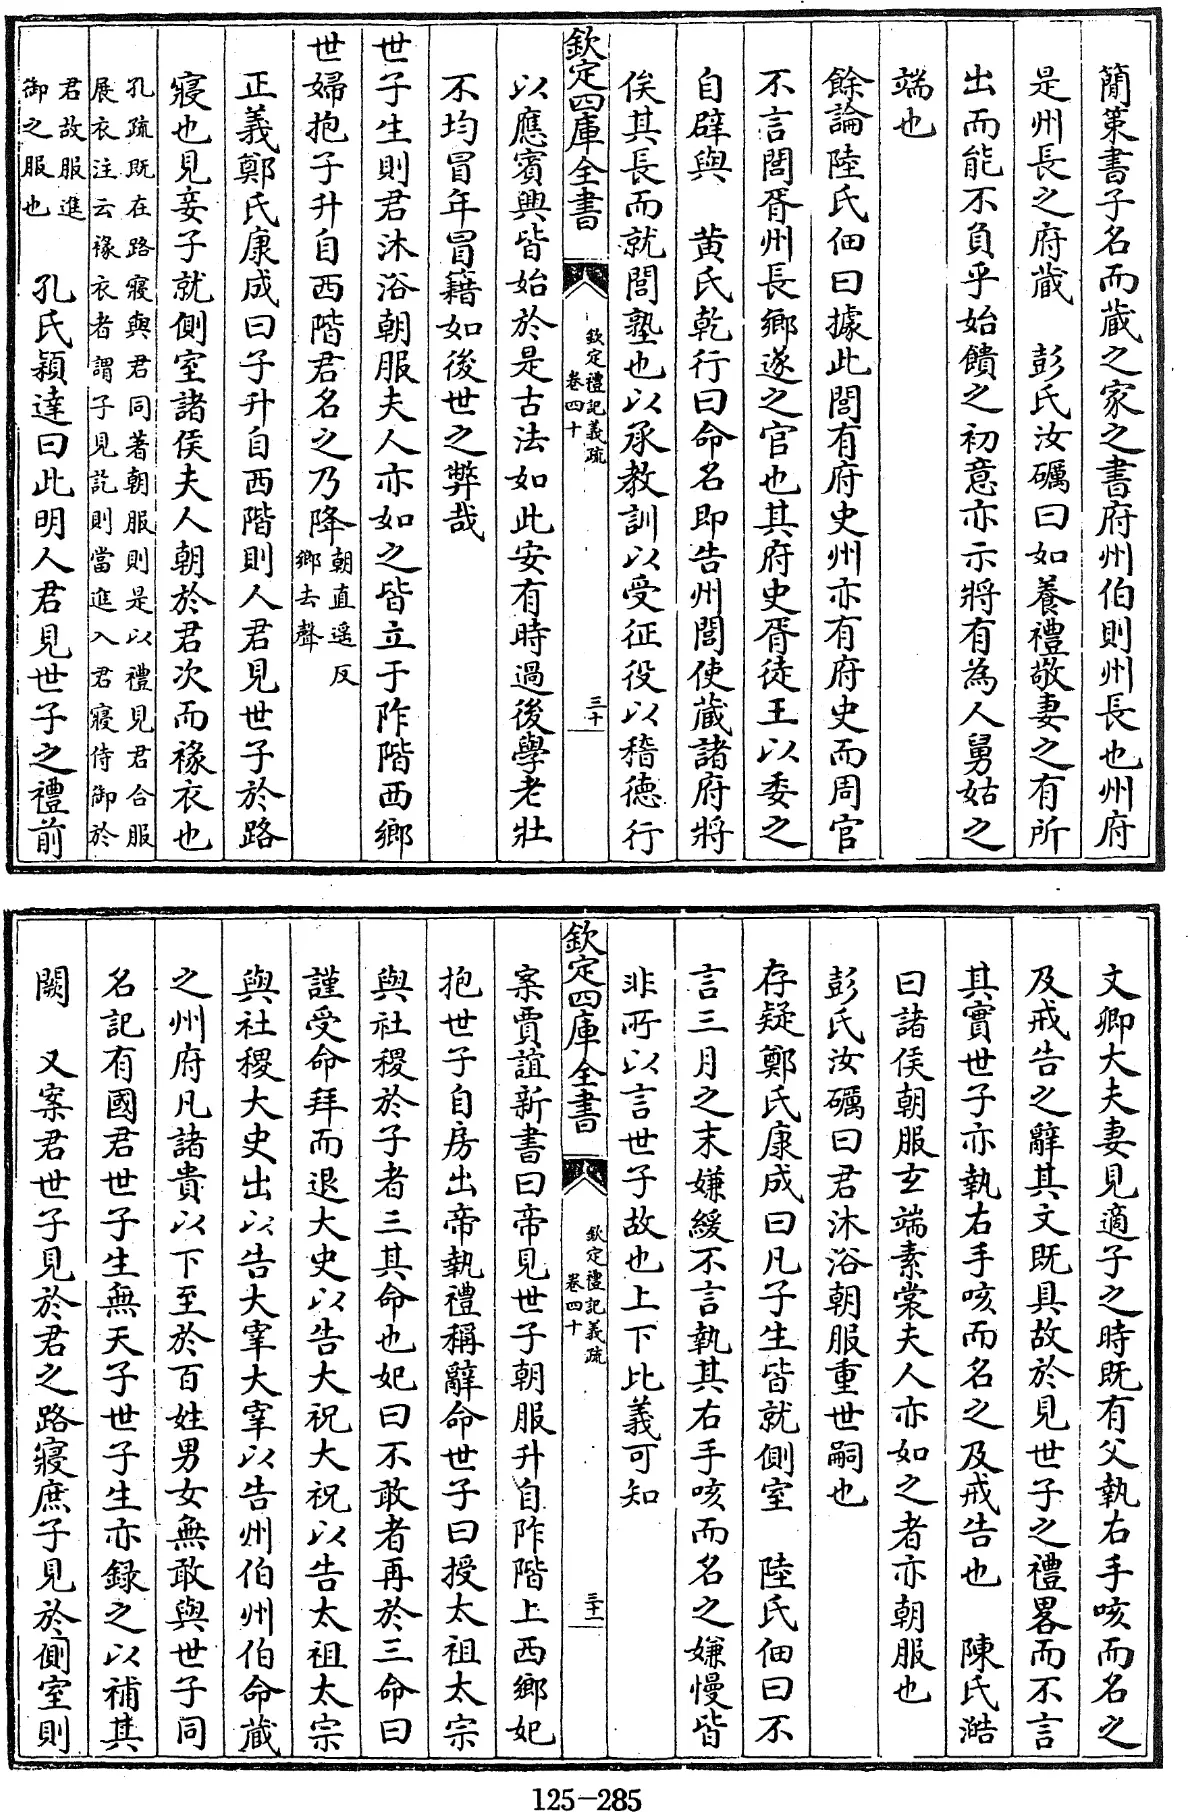 簡策書子名而藏之家之書府州伯則州長也州府
是州長之府藏　彭氏汝礪曰如養禮敬妻之有所
出而能不負乎始饋之初意亦示將有為人舅姑之
端也
餘論陸氏佃曰據此閭有府史州亦有府史而周官
不言閭胥州長鄉遂之官也其府史胥徒王以委之
自辟與　黃氏乾行曰命名即告州閭使藏諸府將
俟其長而就閭塾也以承教訓以受征役以稽德行
欽定四庫全書　欽定禮記義疏　卷四十　三十
以應賓興皆始於是古法如此安有時過後學老壯
不均冒年冒籍如後世之弊哉
世子生則君沐浴朝服夫人亦如之皆立于阼階西鄉
世婦抱子升自西階君名之乃降朝直遥反鄉去聲
正義鄭氏康成曰子升自西階則人君見世子於路
寢也見妾子就側室諸侯夫人朝於君次而褖衣也
孔疏既在路寢與君同著朝服則是以禮見君合服
展衣注云褖衣者謂子見訖則當進入君寢侍御於
君故服進
御之服也　孔氏穎達曰此明人君見世子之禮前
文卿大夫妻見適子之時既有父執右手咳而名之
及戒告之辭其文既具故於見世子之禮畧而不言
其實世子亦執右手咳而名之及戒告也　陳氏澔
曰諸侯朝服玄端素裳夫人亦如之者亦朝服也
彭氏汝礪曰君沐浴朝服重世嗣也
存疑鄭氏康成曰凡子生皆就側室　陸氏佃曰不
言三月之末嫌緩不言執其右手咳而名之嫌慢皆
非所以言世子故也上下比義可知
欽定四庫全書　欽定禮記義疏　卷四十　三十一
案賈誼新書曰帝見世子朝服升自阼階上西鄉妃
抱世子自房出帝執禮稱辭命世子曰授太祖太宗
與社稷於子者三其命也妃曰不敢者再於三命曰
謹受命拜而退大史以告大祝大祝以告太祖太宗
與社稷大史出以告大宰大宰以告州伯州伯命藏
之州府凡諸貴以下至於百姓男女無敢與世子同
名記有國君世子生無天子世子生亦録之以補其
闕　又案君世子見於君之路寢庶子見於側室則
125-285